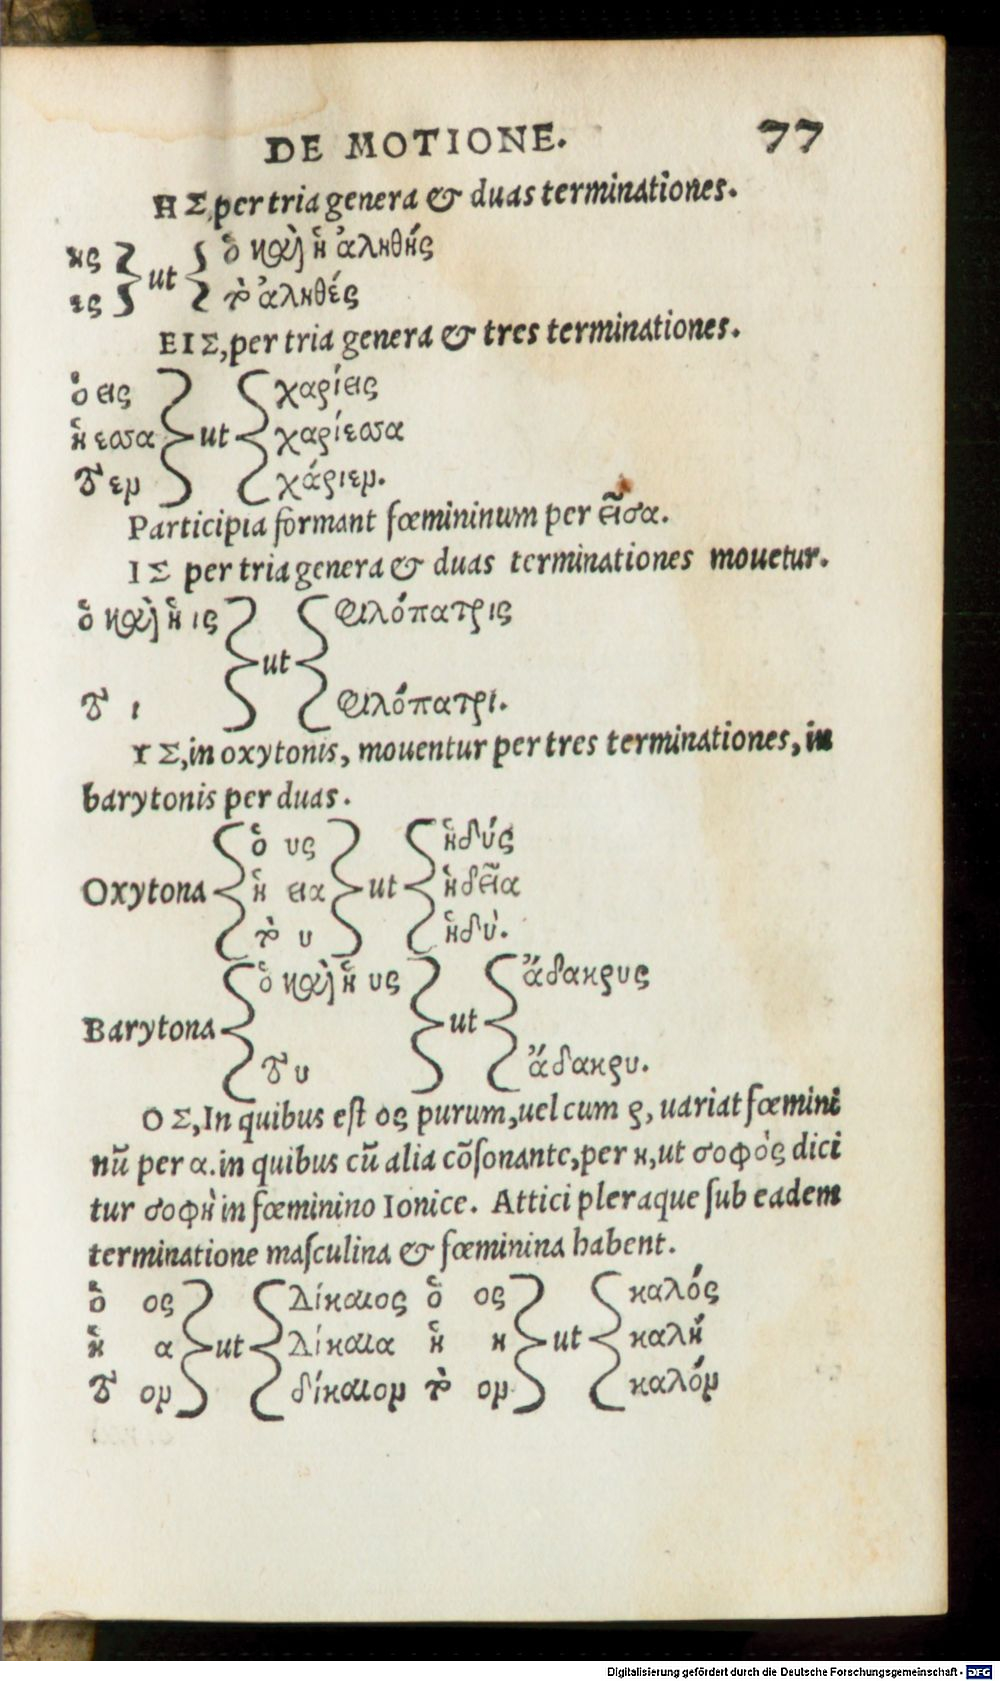 DE MOTIONE. 77
ΗΣ, per tria genera & duas terminationes.
ης ut ὁ καὶ ἡ ἀληθής
ες τὸ ἀληθές
ΕΙΣ, per tria genera & tres terminationes.
ὁ εις χαρίεις
ἡ εσσα ut χαρίεσσα
τὸ εν χάριεν.
Participia formant fœmininum per εῖσα.
ΙΣ per tria genera & duas terminationes mouetur.
ὁ καὶ ἡ ις φιλόπατρις
ut
τὸ ι φιλόπατρι.
ΥΣ, in oxytonis, mouentur per tres terminationes, in
barytonis per duas.
ὁ υς ἡδύς
Oxytona ἡ εια ut ἡδεῖα
τὸ υ ἡδύ.
ὁ καὶ ἡ υς ἄδακρυς
Barytona ut
τὸ υ ἄδακρυ.
ΟΣ, In quibus eſt ος purum, uel cum ρ, uariat fœmini
nũ per α. in quibus cũ alia cõſonante, per η, ut σοφὸς dici
tur σοφὴ in fœminino Ionice. Attici pleraque ſub eadem
terminatione maſculina & fœminina habent.
ὁ ος δίκαιος ὁ ος καλός
ἡ α ut δίκαια ἡ η ut καλή
τὸ ον δίκαιον τὸ ον καλόν
Digitalisierung gefördert durch die Deutsche Forschungsgemeinschaft - DFG